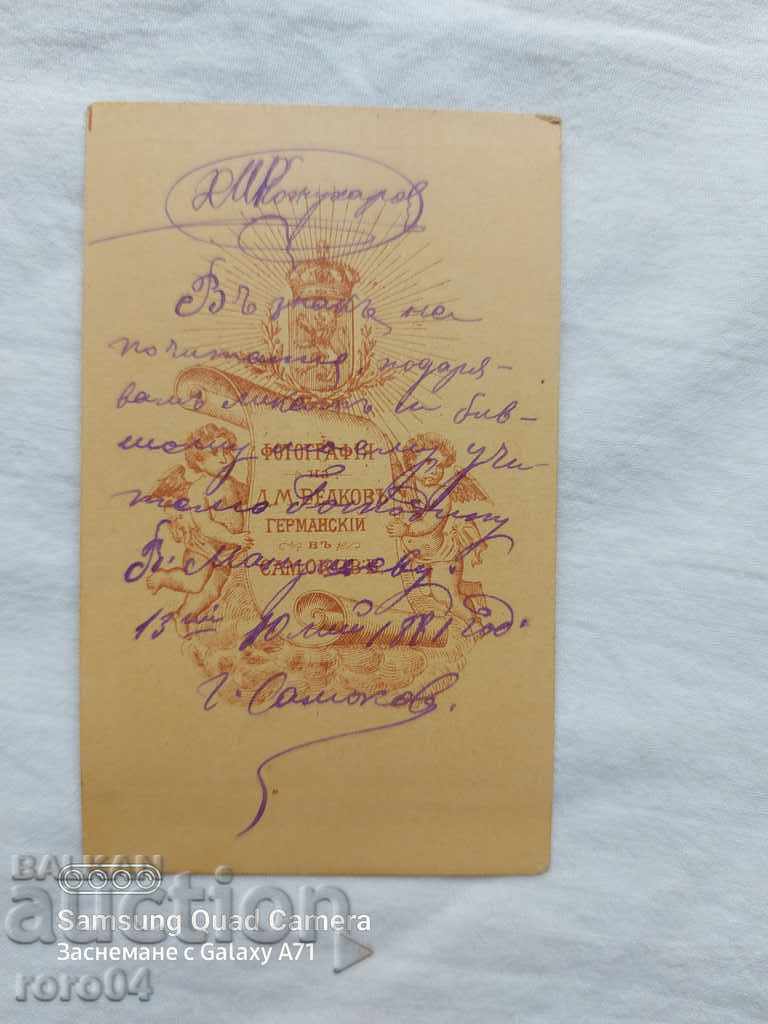 Въ знакъ на
почитание, подаря-
вамъ ликътъ си бив-
шому моему учи-
телю Господину
В. Манчеву.
13ий Юлий 1881 год.
г. Самоков.
ФОТОГРАФІЯ
на
Д.М. ВЕЛКОВЪ
ГЕРМАНСКІЙ
ВЪ
САМОКОВЪ
BALKAN
auction
roro04
Samsung Quad Camera
Заснемане с Galaxy A71